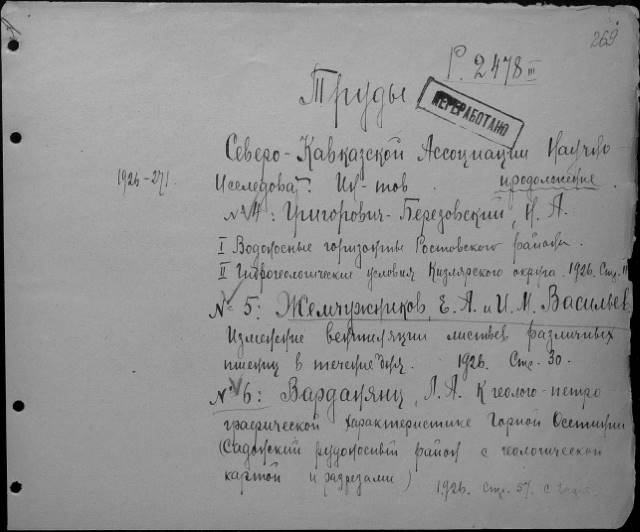 269
Р. 2478 III
Труды
ПЕРЕРАБОТАНО
Северо-Кавказской Ассоциации Научно-
1926-27г. Исследоват. Ин-тов. продолжение.
№ 4: Григорович-Березовский, Н. А.
I Водоносные горизонты Ростовского района.
II Гидрогеологические условия Кизлярского округа. 1926. Стр. 11
№ 5: Жемчужников, Е. А. и И. М. Васильев
Изменение вентиляции листьев различных
пшениц в течение дня. 1926. Стр. 30.
№ 6: Варданянц, Л. А. К геолого-петро
графической характеристике Горной Осетии
(Садонский рудоносный район с геологической
картой и разрезами)
1926. стр. 57. с